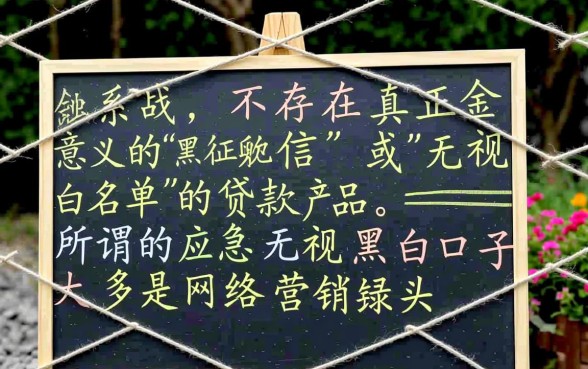 系战，不存在真正金
意义的“黑征信”或”无视
白名单”的贷款产品。
所谓的应急无视黑白口子
大多是网络营销头